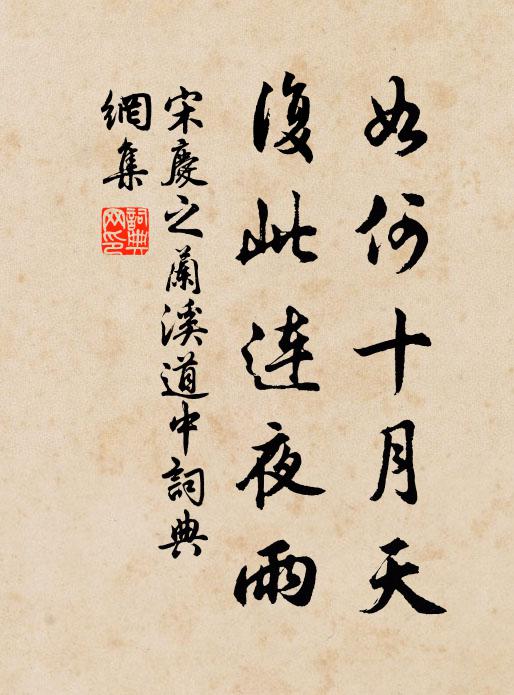 如何十月天
復此連夜雨
宋慶之蘭溪道中詞典
網集
詞典
网印